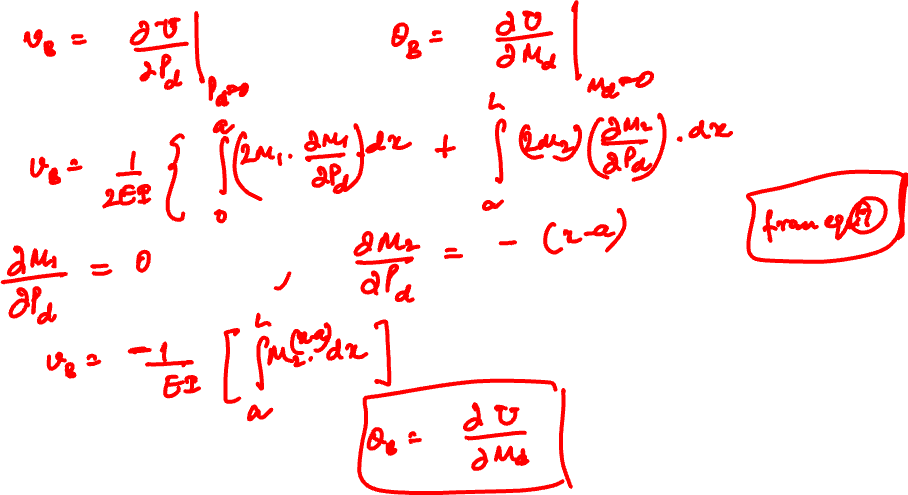 v_B = ∂U/∂P_d |_{P_d=0}    θ_B = ∂U/∂M_d |_{M_d=0}
v_B = 1/2EI { ∫_0^a (2M_1 · ∂M_1/∂P_d) dx + ∫_a^L (2M_2) (∂M_2/∂P_d) · dx
from eq
∂M_1/∂P_d = 0 , ∂M_2/∂P_d = - (x-a)
v_B = -1/EI [ ∫_a^L M_2 · (x-a) dx ]
θ_B = ∂U/∂M_d